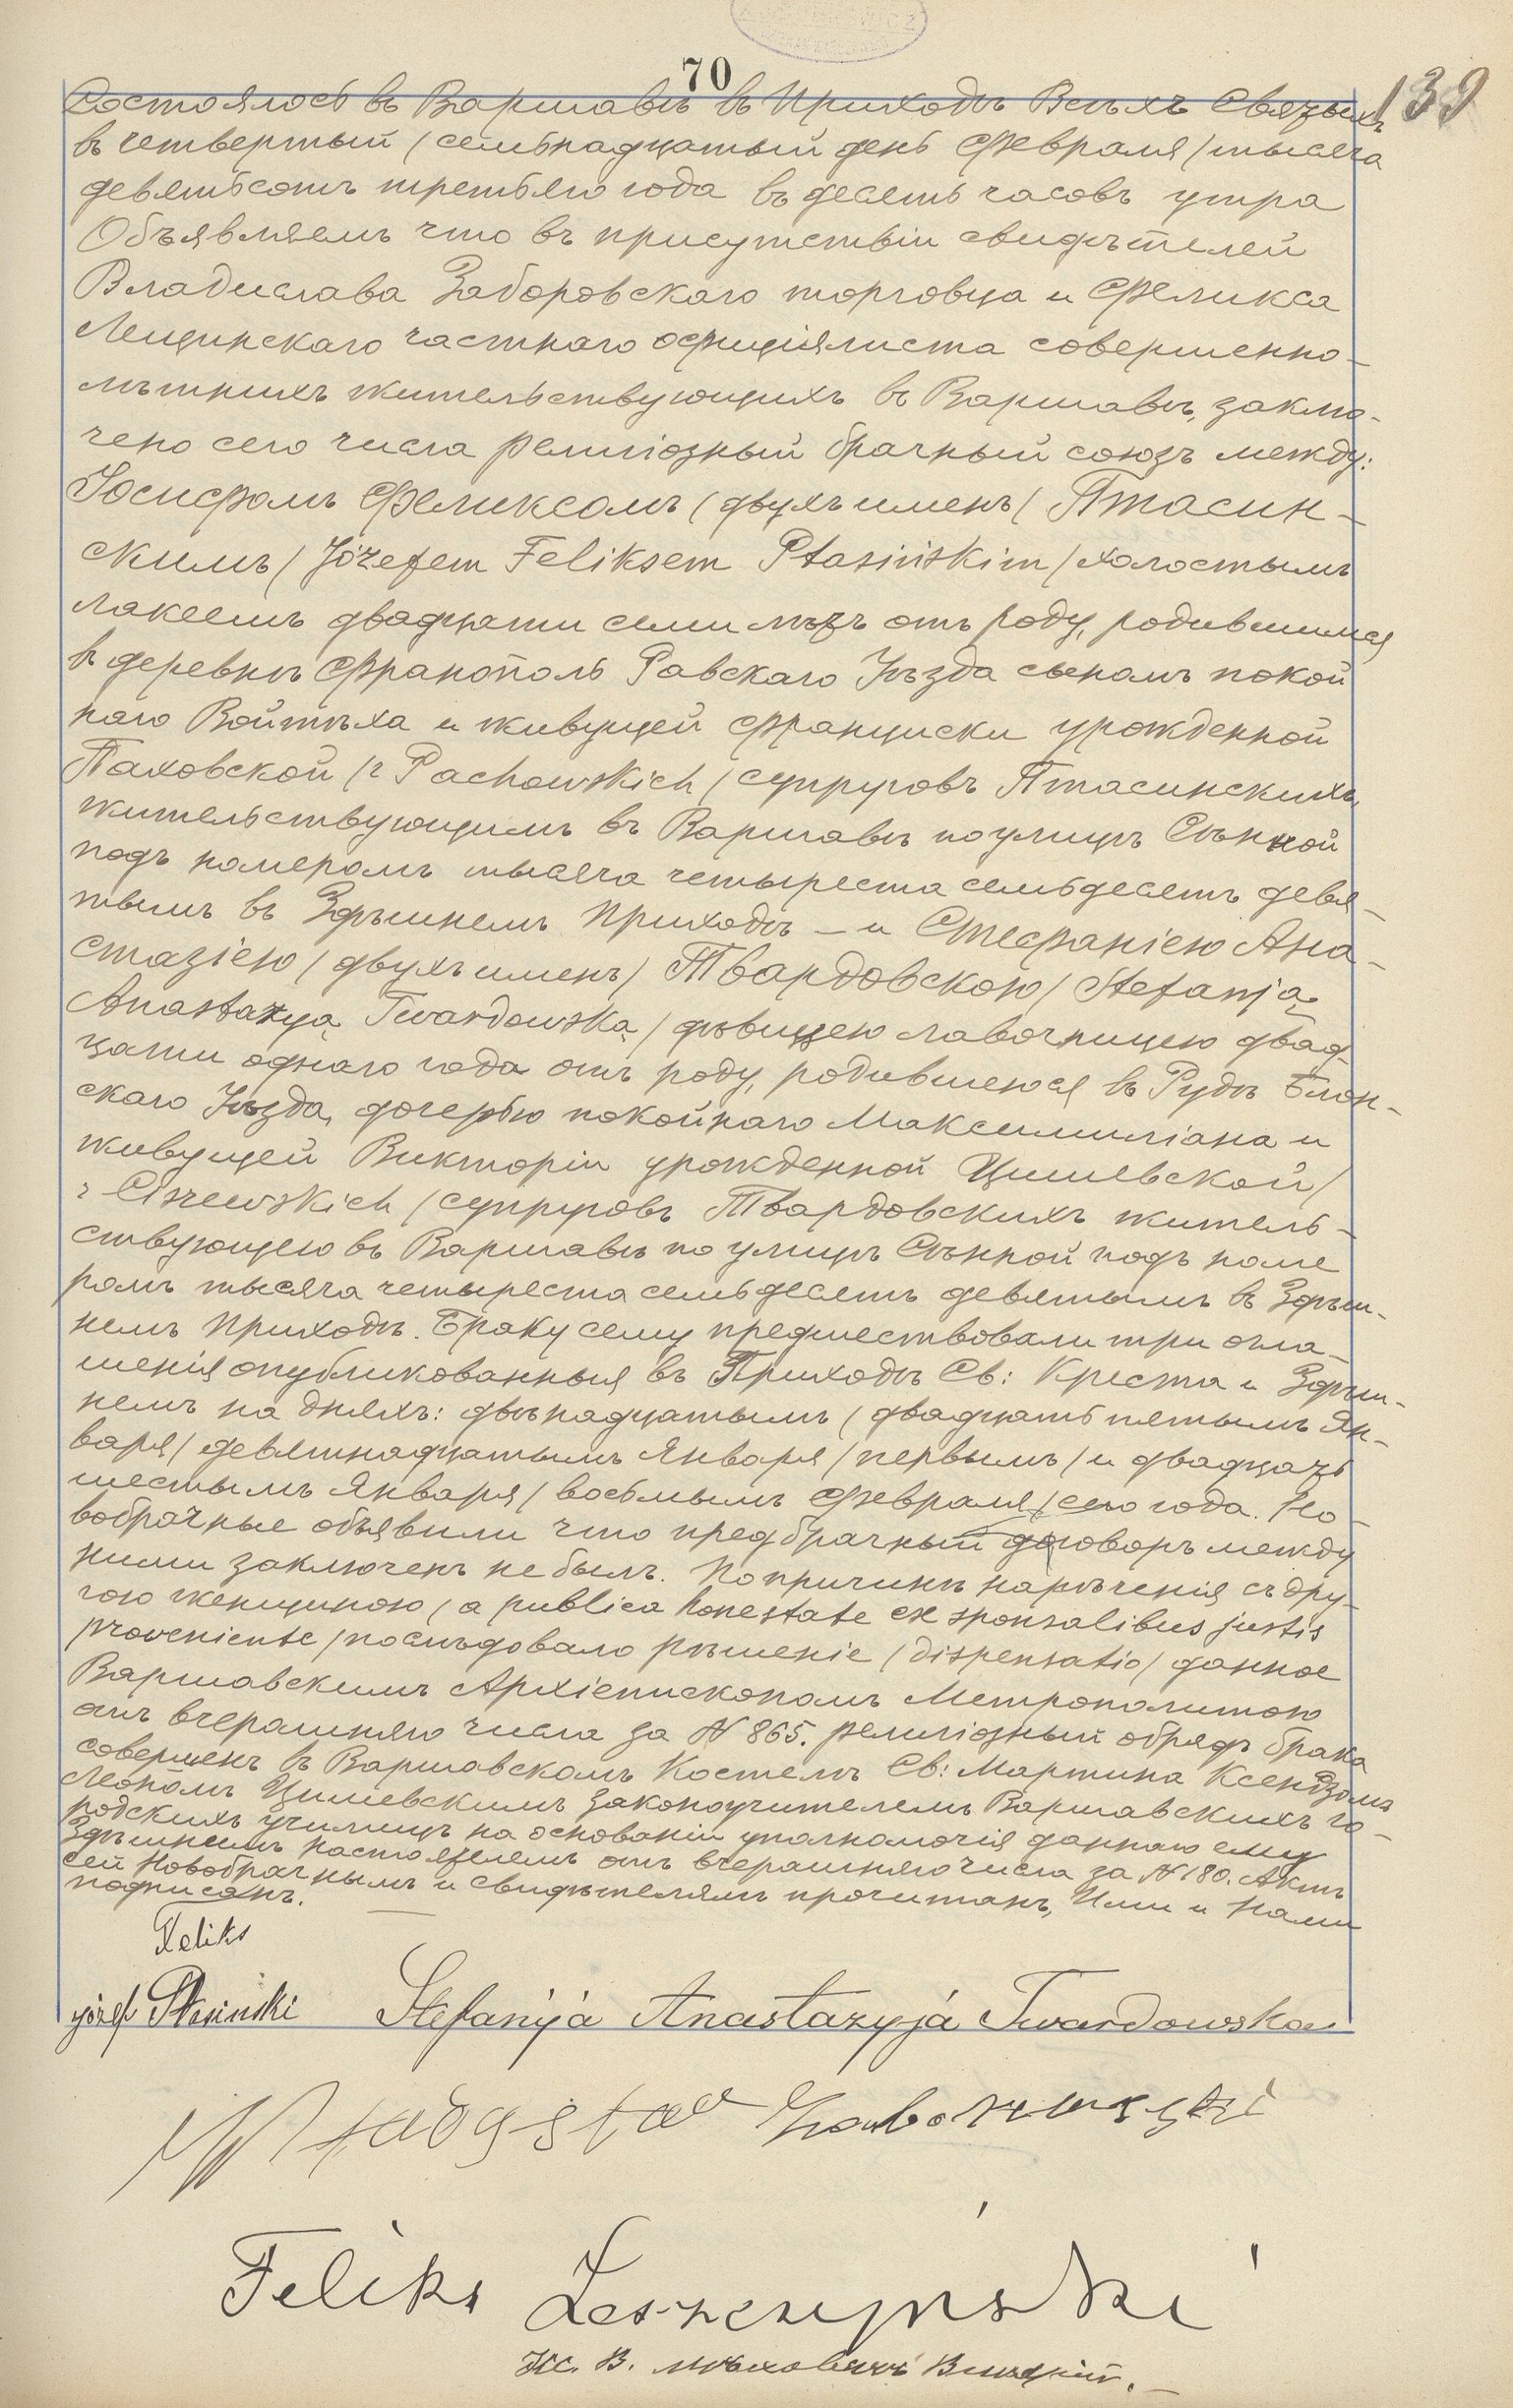 70
139
Состоялось въ Варшавѣ въ Приходѣ Всѣхъ Святыхъ
въ четвертый /семьнадцатый день Февраля/ тысяча
девятьсотъ третьяго года въ десять часовъ утра
Объявляемъ что въ присутствіи свидѣтелей
Владислава Заборовскаго торговца и Феликса
Лещинскаго частнаго оффиціялиста совершенно-
лѣтнихъ жительствующихъ въ Варшавѣ, заклю-
чено сего числа религіозный брачный союзъ между:
Іосифомъ Феликсомъ /двухъ именъ/ Птасин-
скимъ /Józefem Feliksem Ptasińskim/ холостымъ
лакеемъ двадцати семи лѣтъ отъ роду, родившимся
въ деревнѣ Франополь Равскаго Уѣзда сыномъ покой
наго Войтѣха и живущей Франциски урожденной
Паховской /z Pachowskich/ супруговъ Птасинскихъ,
жительствующимъ въ Варшавѣ по улицѣ Сѣнной
подъ номеромъ тысяча четыреста семьдесятъ девя-
тымъ въ Здѣшнемъ Приходѣ – и Стефаніею Ана-
стазіею /двухъ именъ/ Твардовскою /Stefanją
Anastazyą Twardowską/ дѣвицею лавочницею двад-
цати одного года отъ роду, родившеюся въ Рудѣ Блон-
скаго Уѣзда, дочерью покойнаго Максимиліана и
живущей Викторіи урожденной Цишевской/
z Ciszewskich/ супруговъ Твардовскихъ житель-
ствующею въ Варшавѣ по улицѣ Сѣнной подъ номе
ромъ тысяча четыреста семьдесятъ девятымъ въ Здѣш-
немъ Приходѣ. Браку сему предшествовали три огла-
шенія опубликованныя въ Приходѣ Св: Креста и Здѣш-
немъ на дняхъ: двѣнадцатымъ /двадцать пятымъ Ян-
варя/ девятнадцатымъ Января /первымъ/ и двадцать
шестымъ Января /восьмымъ Февраля/ сего года. Но-
вобрачные объявили что предбрачный договоръ между
ними заключенъ не былъ. По причинѣ нарѣченія съ дру-
гою женщиною /a publica honestate ex sponsalibus justis
proveniente/ послѣдовало рѣшеніе /dispensatio/ данное
Варшавскимъ Архіепископомъ Метрополитою
отъ вчерашняго числа за N 865. религіозный обрядъ брака
совершенъ въ Варшавскомъ Костелѣ Св: Мартина Ксендзомъ
Леономъ Цишевскимъ законоучителемъ Варшавскихъ го-
родскихъ училищъ на основаніи уполномочія даннаго ему
Здѣшнимъ настоятелемъ отъ вчерашняго числа за N 180. Актъ
сей Новобрачнымъ и свидѣтелямъ прочитанъ, Ими и Нами
подписанъ.
Feliks
Józef Ptasinski Stefanija Anastazyja Twardowska
Władysław Zaborowski
Feliks Leszczyński
Кс. В.